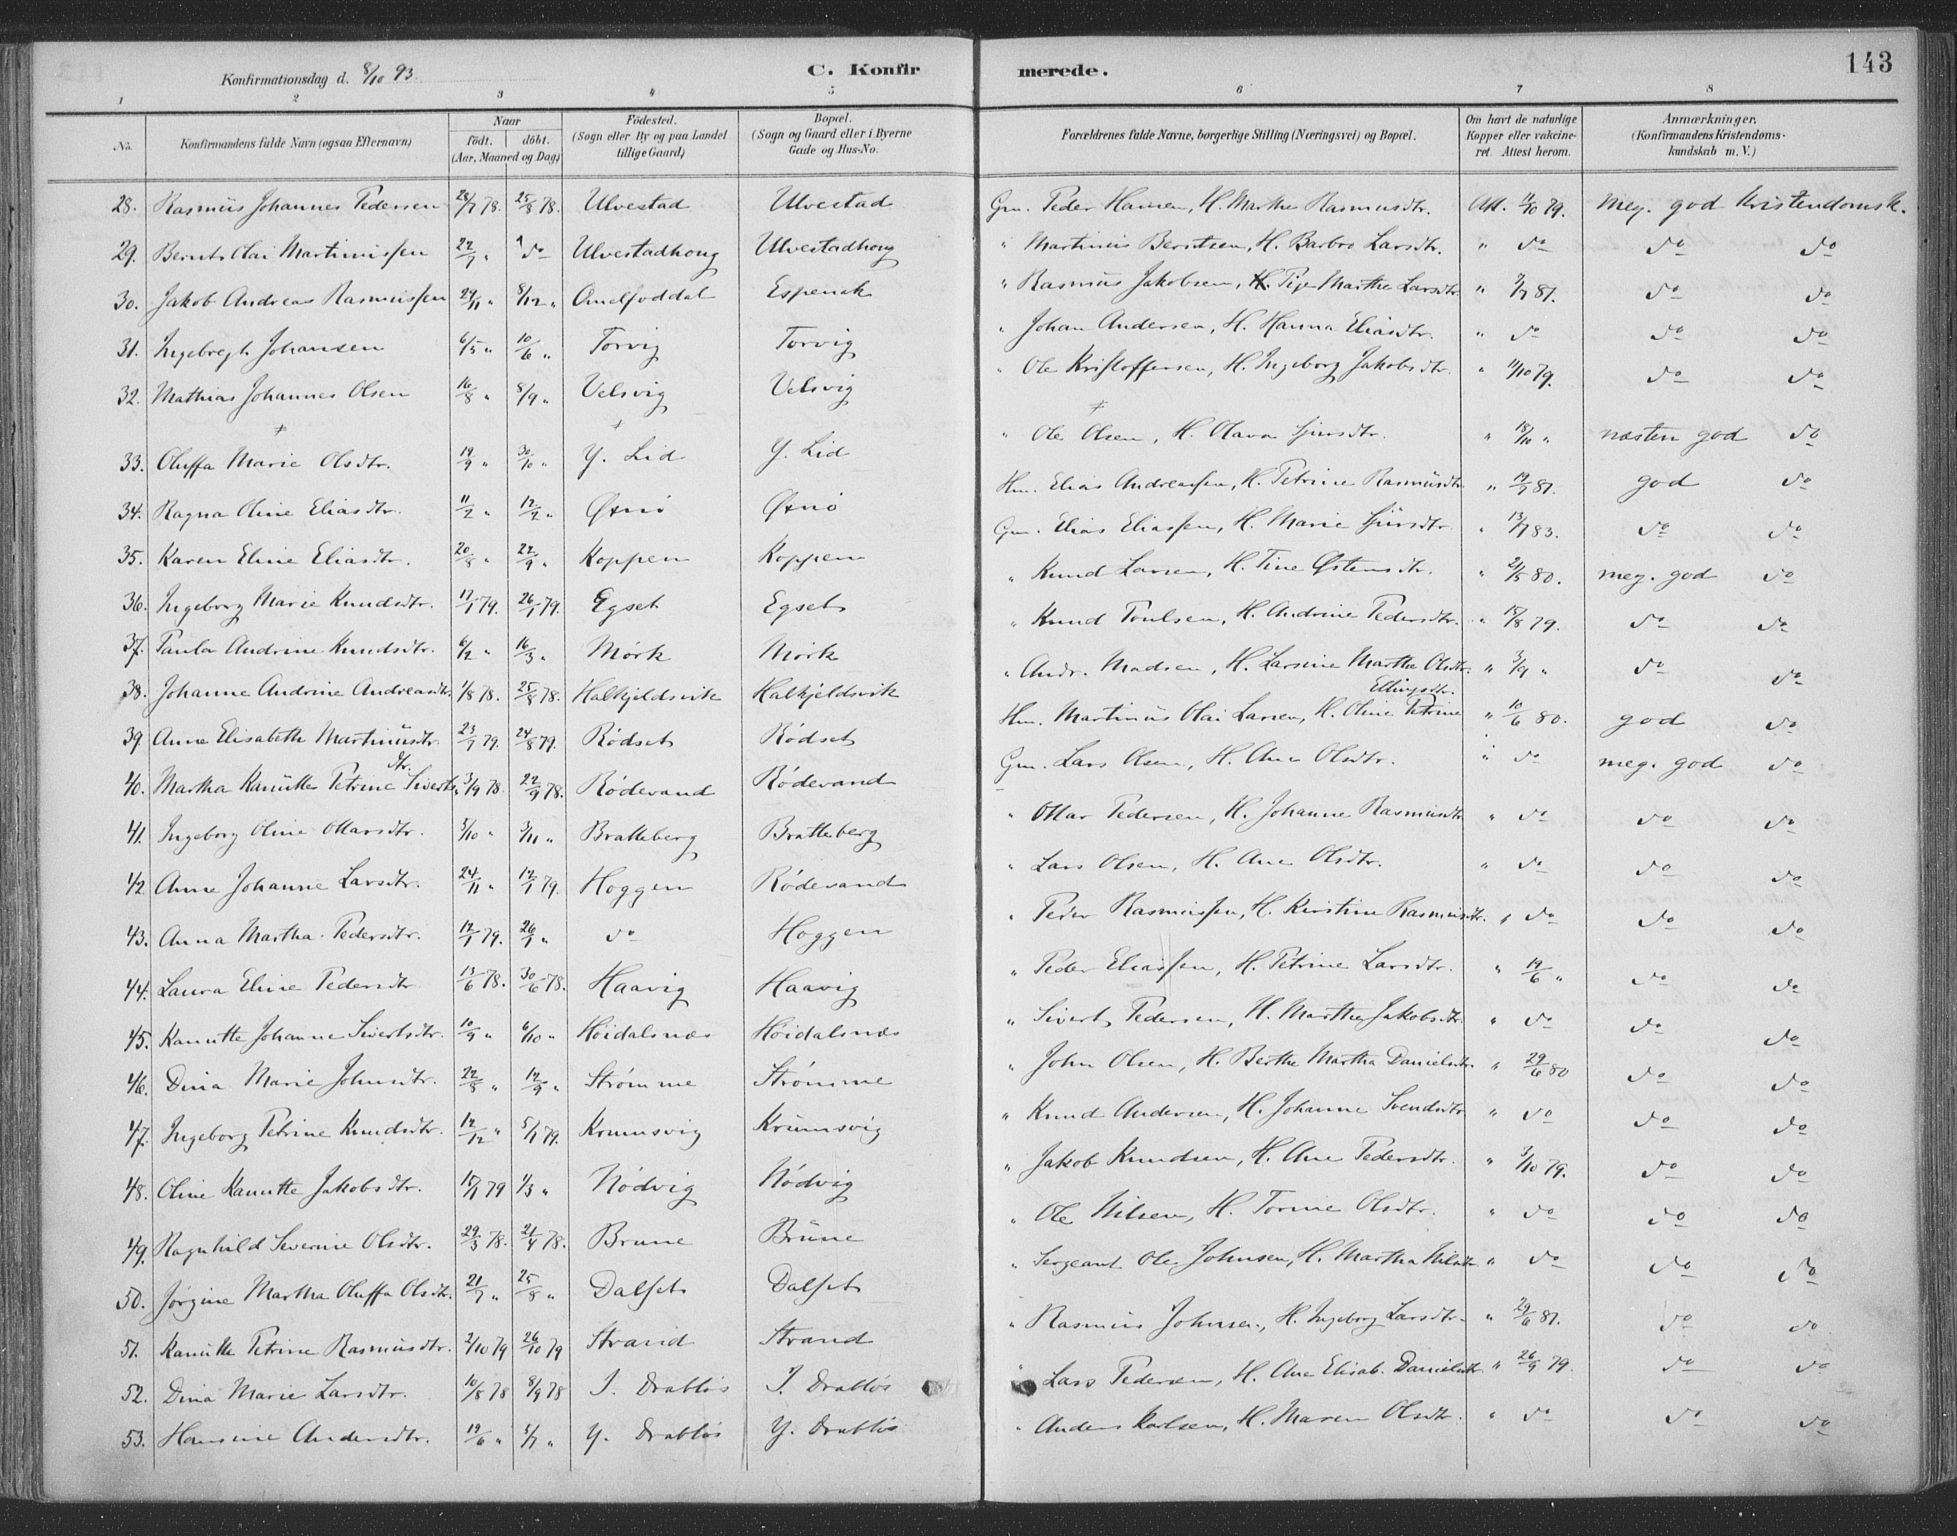 Konfirmationsdag d. 8/10 93
C. Konfirmerede.
143
1 2 3 4 5 6 7 8
No. | Konfirmandens fulde Navn (ogsaa Efternavn) | Naar født. døbt. (Aar, Maaned og Dag) | Fødested. (Sogn eller By og paa Landet tillige Gaard) | Bopæl. (Sogn og Gaard eller i Byerne Gade og Hus-No. | Forældrenes fulde Navne, borgerlige Stilling (Næringsvei) og Bopæl. | Om havt de naturlige Kopper eller vakcineret. Attest herom. | Anmærkninger. (Konfirmandens Kristendomskundskab m. V.)
28. Rasmus Johannes Pedersen 28/7 78. 25/8 78. Ulvestad Ulvestad Gm. Peder Hansen, H. Marthe Rasmusdtr. Att. 11/10 79. meg. god Kristendomsk.
29. Bernt Olai Martinussen 22/7 " do Ulvestadhoug Ulvestadhoug " Martinus Berntsen, H. Barbro Larsdtr. " do do do
30. Jakob Andreas Rasmussen 29/11 " 8/12 " Espenak " Rasmus Jakobsen, Pige Marthe Larsdtr. " 7/7 81. do do
31. Ingebregt Johansen 6/5 " 10/6 " Torvig Torvig " Johan Andersen, H. Hanna Eliasdtr. " do do do
32. Mathias Johannes Olsen 16/8 " 8/9 " Velsvig Velsvig " Ole Kristoffersen, H. Ingeborg Jakobsdtr. " 11/10 79. do do
33. Oluffa Marie Olsdtr. 19/9 " 30/10 " Y. Lid Y. Lid " Ole Olsen, H. Olava Sjursdtr. " 18/10 " næsten god do
34. Ragna Oline Eliasdtr. 11/2 " 17/2 " Øxnø Øxnø Hm. Elias Andreassen, H. Petrine Rasmusdtr. " 19/7 81. god do
35. Karen Eline Eliasdtr. 20/8 " 22/9 " Koppen Koppen Gm. Elias Eliassen, H. Marie Sjursdtr. " 13/7 83. do do
36. Ingeborg Marie Knudsdtr. 17/1 79. 26/1 79. Egset Egset " Knud Larsen, H. Tine Østensdtr. " 21/5 80. meg. god do
37. Paula Andrine Knudsdtr. 6/2 " 16/3 " Mørk Mørk " Knud Poulsen, H. Andrine Pedersdtr. " 18/8 79. do do
38. Johanne Andrine Andreasdtr. 1/8 78. 25/8 78. Halkjeldsvik Halkjeldsvik " Andr. Madsen, H. Larsine Marthe Olsdtr. " 3/9 " do do
39. Anne Elisabeth Martinusdtr. 23/7 79. 24/8 79. Rødset Rødset Hm. Martinus Olai Larsen, H. Oline Petrine Ellingsdtr. " 10/6 80. god do
40. Martha Kanutte Petrine Sivertsdtr. 3/9 78. 22/9 78. Rødevand Rødevand Gm. Lars Olsen, H. Ane Olsdtr. " do meg. god do
41. Ingeborg Oline Ottarsdtr. 3/10 " 3/11 " Bratteberg Bratteberg " Ottar Pedersen, H. Johanne Rasmusdtr. " do do do
42 Anne Johanne Larsdtr. 24/11 " 12/1 79. Hoggen Rødevand " Lars Olsen, H. Ane Olsdtr. " do do do
43. Anna Martha Pedersdtr. 12/1 79. 26/1 " do Hoggen " Peder Rasmussen, H. Kirstine Rasmusdtr. " do do do
44. Laura Eline Pedersdtr 13/6 78. 30/6 78. Haavig Haavig " Peder Eliassen, H. Petrine Larsdtr. " 19/6 " do do
45. Kanutte Johanne Sivertsdtr. 10/9 " 6/10 " Høidalsnæs Høidalsnæs " Sivert Pedersen, H. Marthe Jakobsdtr. " do do do
46. Dina Marie Johnsdtr. 22/8 " 12/9 " Strømme Strømme " John Olsen, H. Berthe Martha Danielsdtr. " 29/6 80 do do
47. Ingeborg Petrine Knudsdtr. 12/12 " 5/1 79. Krumsvig Krumsvig " Knud Andersen, H. Johanne Svendsdtr " do do do
48. Oline Kanutte Jakobsdtr. 15/1 79 1/3 " Nødvig Nødvig " Jakob Knudsen, H. Ane Pedersdtr. " 3/10 79. do do
49. Ragnhild Severine Olsdtr. 29/3 78. 21/4 78. Brune Brune " Ole Nilsen, H. Torine Olsdtr. " do do do
50. Jørgine Martha Oluffa Olsdtr. 21/7 " 25/8 " Dalset Dalset " Sergeant Ole Johnsen, H. Martha Nilsdtr " do do do
51. Kanutte Petrine Rasmusdtr. 2/10 79 26/10 79 Strand Strand " Rasmus Johnsen, H. Ingeborg Larsdtr. " 29/6 81. do do
52. Dina Marie Larsdtr. 10/8 78 8/9 78 I. Drabløs I. Drabløs " Lars Pedersen, H. Ane Elisab. Danielsdtr " 26/9 79. do do
53. Hansine Andersdtr. 19/6 " 5/7 " Y. Drabløs Y. Drabløs " Anders Karlsen, H. Maren Olsdtr. " do do do